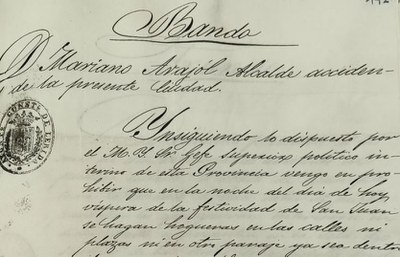 Bando
D. Mariano Arajól Alcalde acciden-
de la presente Ciudad.
Ynsiguiendo lo dispuesto por
el M. Y. Sr. Gefe Superior politico in-
terino de esta Provincia vengo en pro-
hibir que en la noche del dia de hoy
vispera de la festividad de San Juan
se hagan hogueras en las calles ni
plazas ni en otro parage ya sea dentro
CONSTL. DE LERID